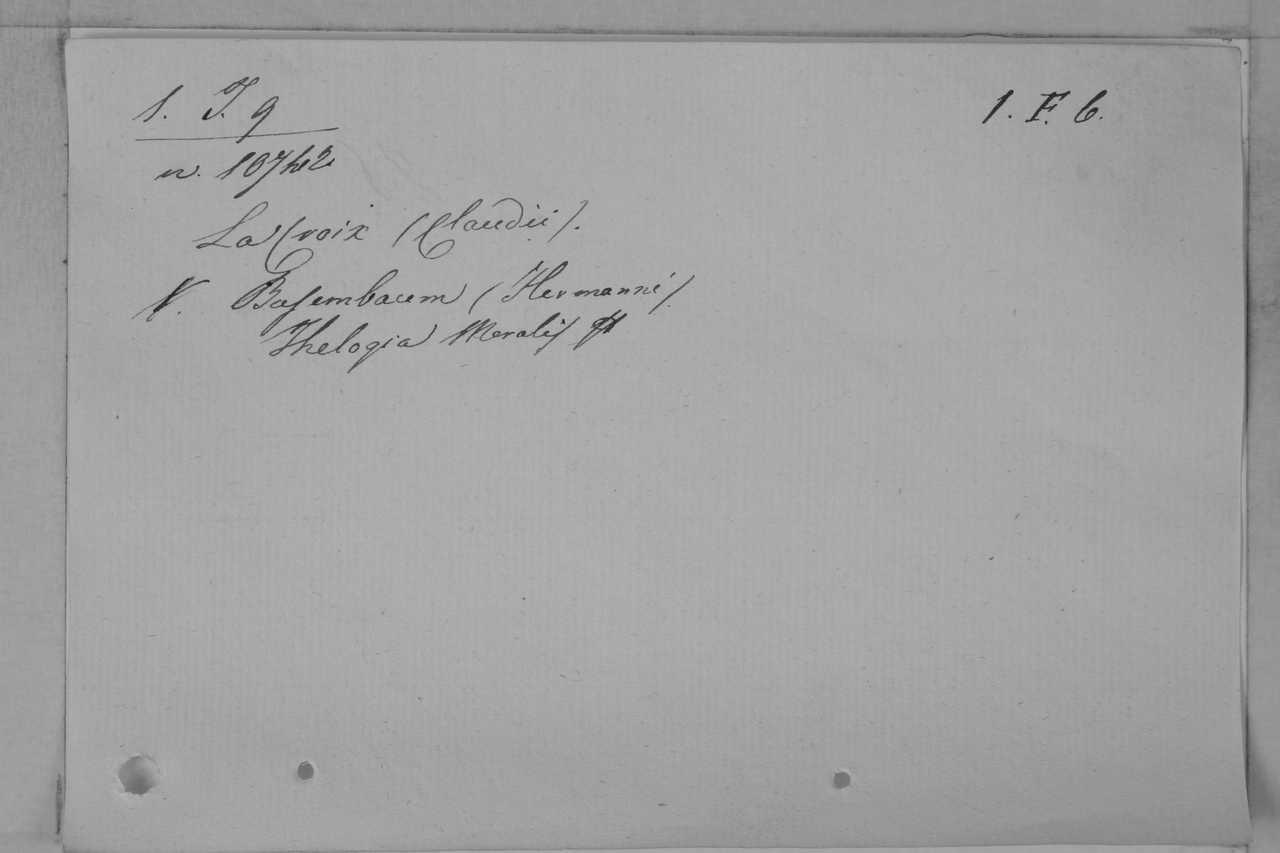 1. J. 9
1. F. 6.
n. 10742
La Croix (Claudii).
V. Busembaum (Hermanni).
Thelogia Moralis